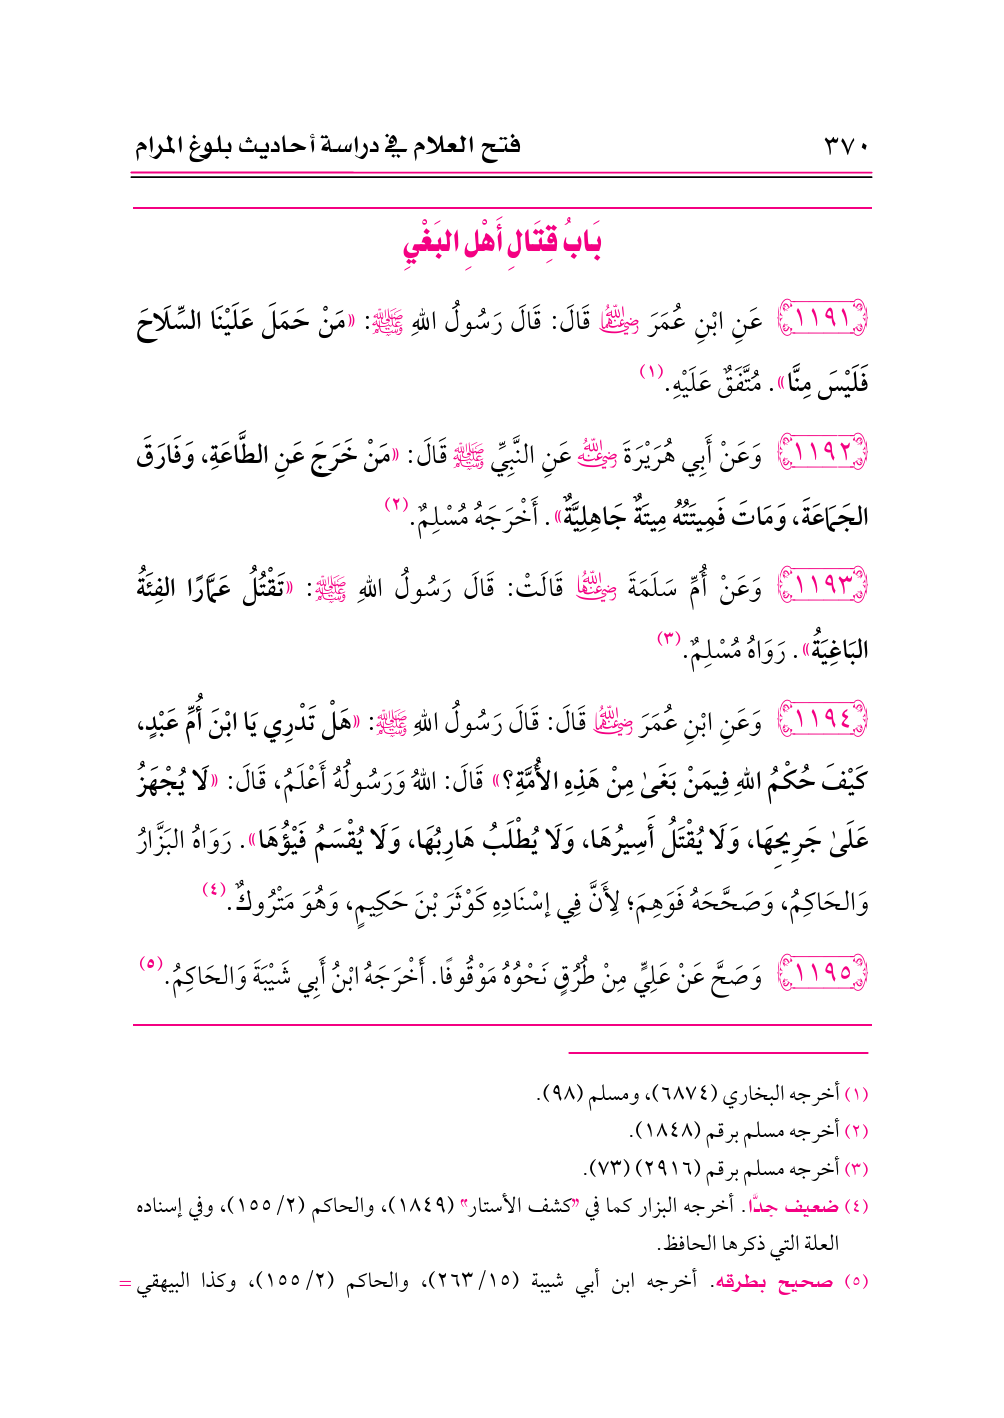 ٣٧٠ فتح العلام في دراسة أحاديث بلوغ المرام
بَابُ قِتَالِ أَهْلِ البَغْيِ
١١٩١ عَنِ ابْنِ عُمَرَ رضي الله عنهما قَالَ: قَالَ رَسُولُ اللهِ ﷺ: «مَنْ حَمَلَ عَلَيْنَا السِّلَاحَ
فَلَيْسَ مِنَّا». مُتَّفَقٌ عَلَيْهِ.(١)
١١٩٢ وَعَنْ أَبِي هُرَيْرَةَ رضي الله عنه عَنِ النَّبِيِّ ﷺ قَالَ: «مَنْ خَرَجَ عَنِ الطَّاعَةِ، وَفَارَقَ
الجَمَاعَةَ، وَمَاتَ فَمِيتَتُهُ مِيتَةٌ جَاهِلِيَّةٌ». أَخْرَجَهُ مُسْلِمٌ.(٢)
١١٩٣ وَعَنْ أُمِّ سَلَمَةَ رضي الله عنها قَالَتْ: قَالَ رَسُولُ اللهِ ﷺ: «تَقْتُلُ عَمَّارًا الفِئَةُ
البَاغِيَةُ». رَوَاهُ مُسْلِمٌ.(٣)
١١٩٤ وَعَنِ ابْنِ عُمَرَ رضي الله عنهما قَالَ: قَالَ رَسُولُ اللهِ ﷺ: «هَلْ تَدْرِي يَا ابْنَ أُمِّ عَبْدٍ،
كَيْفَ حُكْمُ اللهِ فِيمَنْ بَغَىٰ مِنْ هَذِهِ الأُمَّةِ؟» قَالَ: اللهُ وَرَسُولُهُ أَعْلَمُ، قَالَ: «لَا يُجْهَزُ
عَلَىٰ جَرِيحِهَا، وَلَا يُقْتَلُ أَسِيرُهَا، وَلَا يُطْلَبُ هَارِبُهَا، وَلَا يُقْسَمُ فَيْؤُهَا». رَوَاهُ البَزَّارُ
وَالحَاكِمُ، وَصَحَّحَهُ فَوَهِمَ؛ لِأَنَّ فِي إِسْنَادِهِ كَوْثَرَ بْنَ حَكِيمٍ، وَهُوَ مَتْرُوكٌ.(٤)
١١٩٥ وَصَحَّ عَنْ عَلِيٍّ مِنْ طُرُقٍ نَحْوُهُ مَوْقُوفًا. أَخْرَجَهُ ابْنُ أَبِي شَيْبَةَ وَالحَاكِمُ.(٥)
(١) أخرجه البخاري (٦٨٧٤)، ومسلم (٩٨).
(٢) أخرجه مسلم برقم (١٨٤٨).
(٣) أخرجه مسلم برقم (٢٩١٦) (٧٣).
(٤) ضعيف جدًّا. أخرجه البزار كما في "كشف الأستار" (١٨٤٩)، والحاكم (٢/ ١٥٥)، وفي إسناده
العلة التي ذكرها الحافظ.
(٥) صحيح بطرقه. أخرجه ابن أبي شيبة (١٥/ ٢٦٣)، والحاكم (٢/ ١٥٥)، وكذا البيهقي =